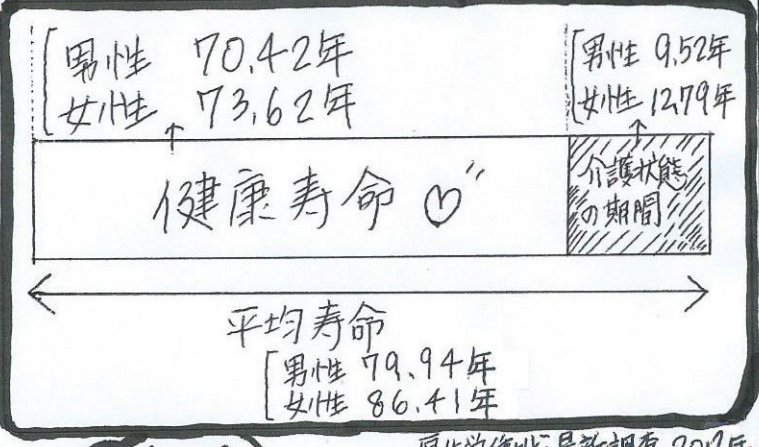 男性 70.42年
女性 73.62年
男性 9.52年
女性 12.79年
健康寿命
介護状態
の期間
平均寿命
男性 79.94年
女性 86.41年
調査 2012年